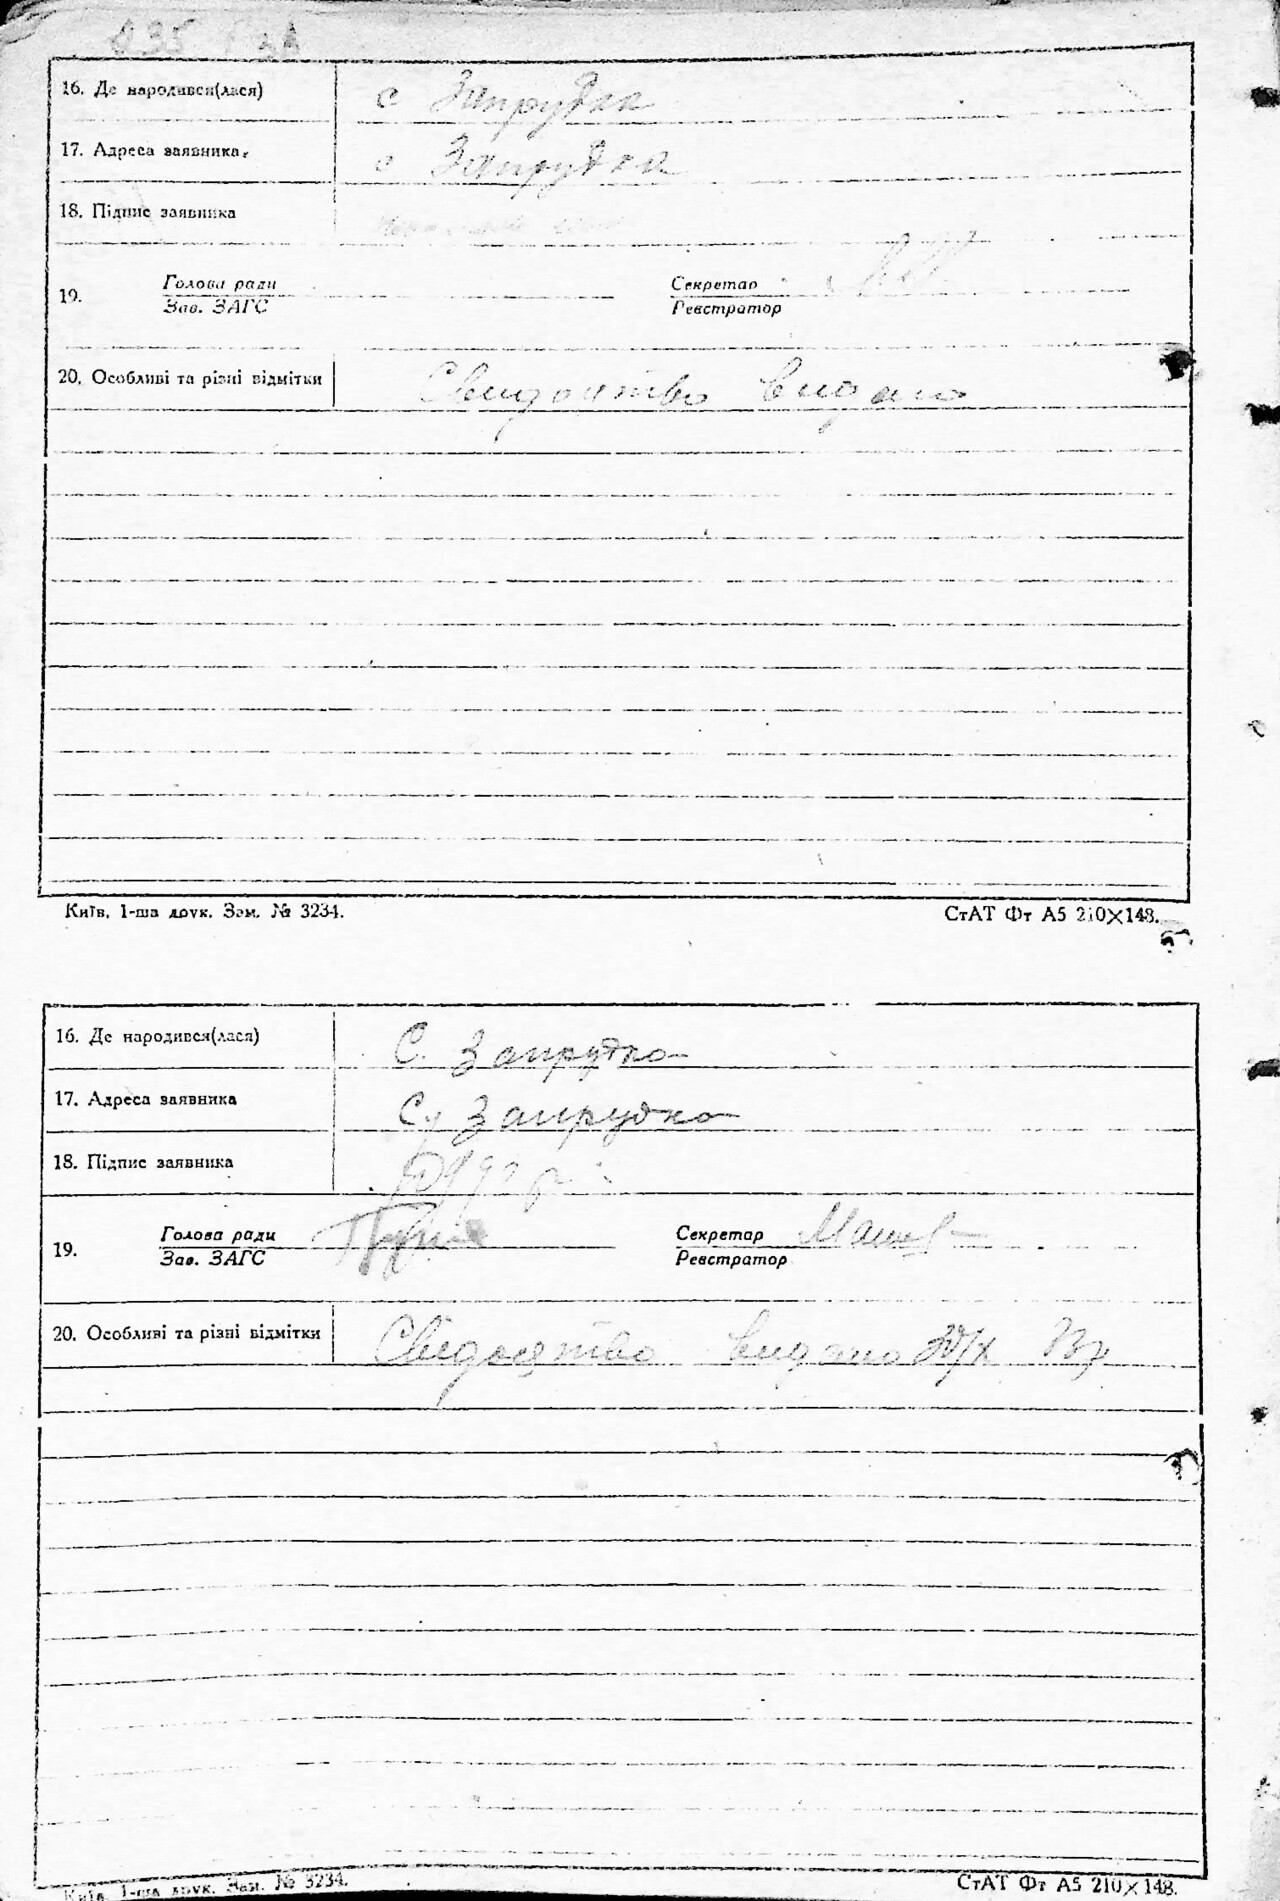 16. Де народився(лася) с Запрудка
17. Адреса заявника. с Запрудка
18. Підпис заявника
19. Голова ради Секретар
Зав. ЗАГС Реєстратор
20. Особливі та різні відмітки Свидоцтво видано
Київ, 1-ша друк. Зам. № 3234. СтАТ Фт А5 210×148.
16. Де народився(лася) С. Запрудка
17. Адреса заявника С. Запрудка
18. Підпис заявника
19. Голова ради Секретар
Зав. ЗАГС Реєстратор
20. Особливі та різні відмітки Свідоцтво видано
Київ, 1-ша друк. Зам. № 3234. СтАТ Фт А5 210×148.